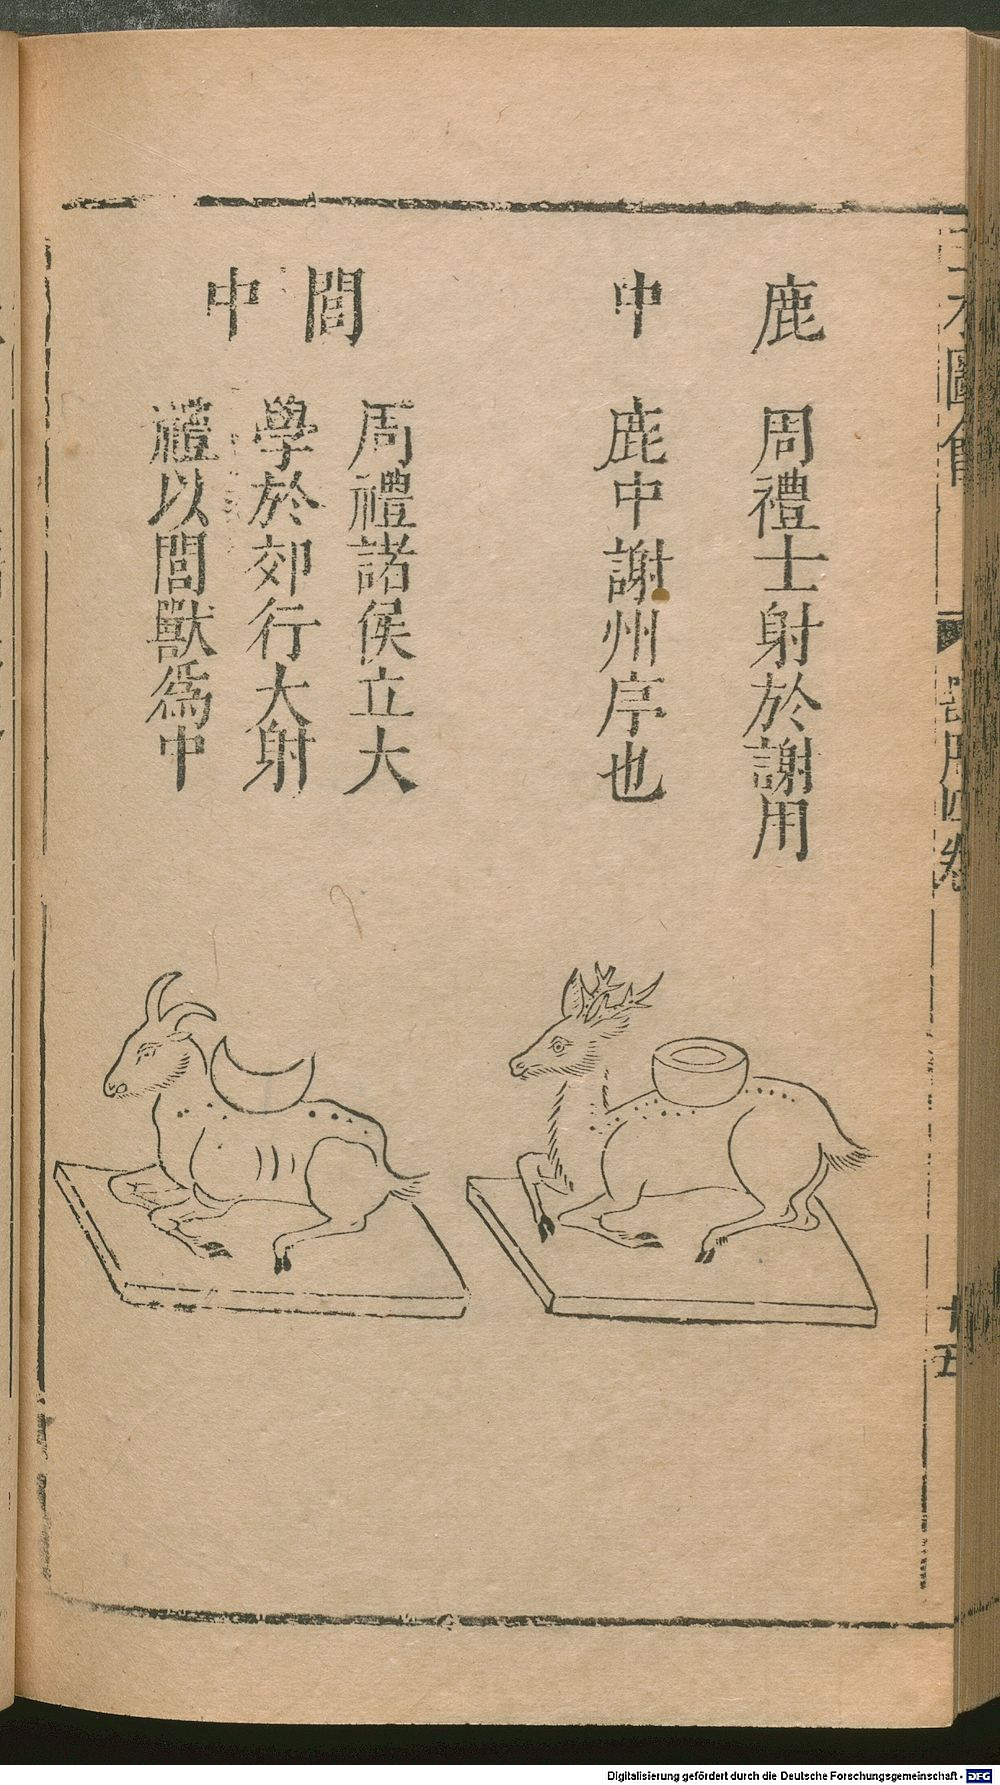 三才圖會
器用四卷
十五
鹿 周禮士射於謝用
中 鹿中謝州序也
閭 周禮諸侯立大
學於郊行大射
中 禮以閭獸爲中
Digitalisierung gefördert durch die Deutsche Forschungsgemeinschaft - DFG